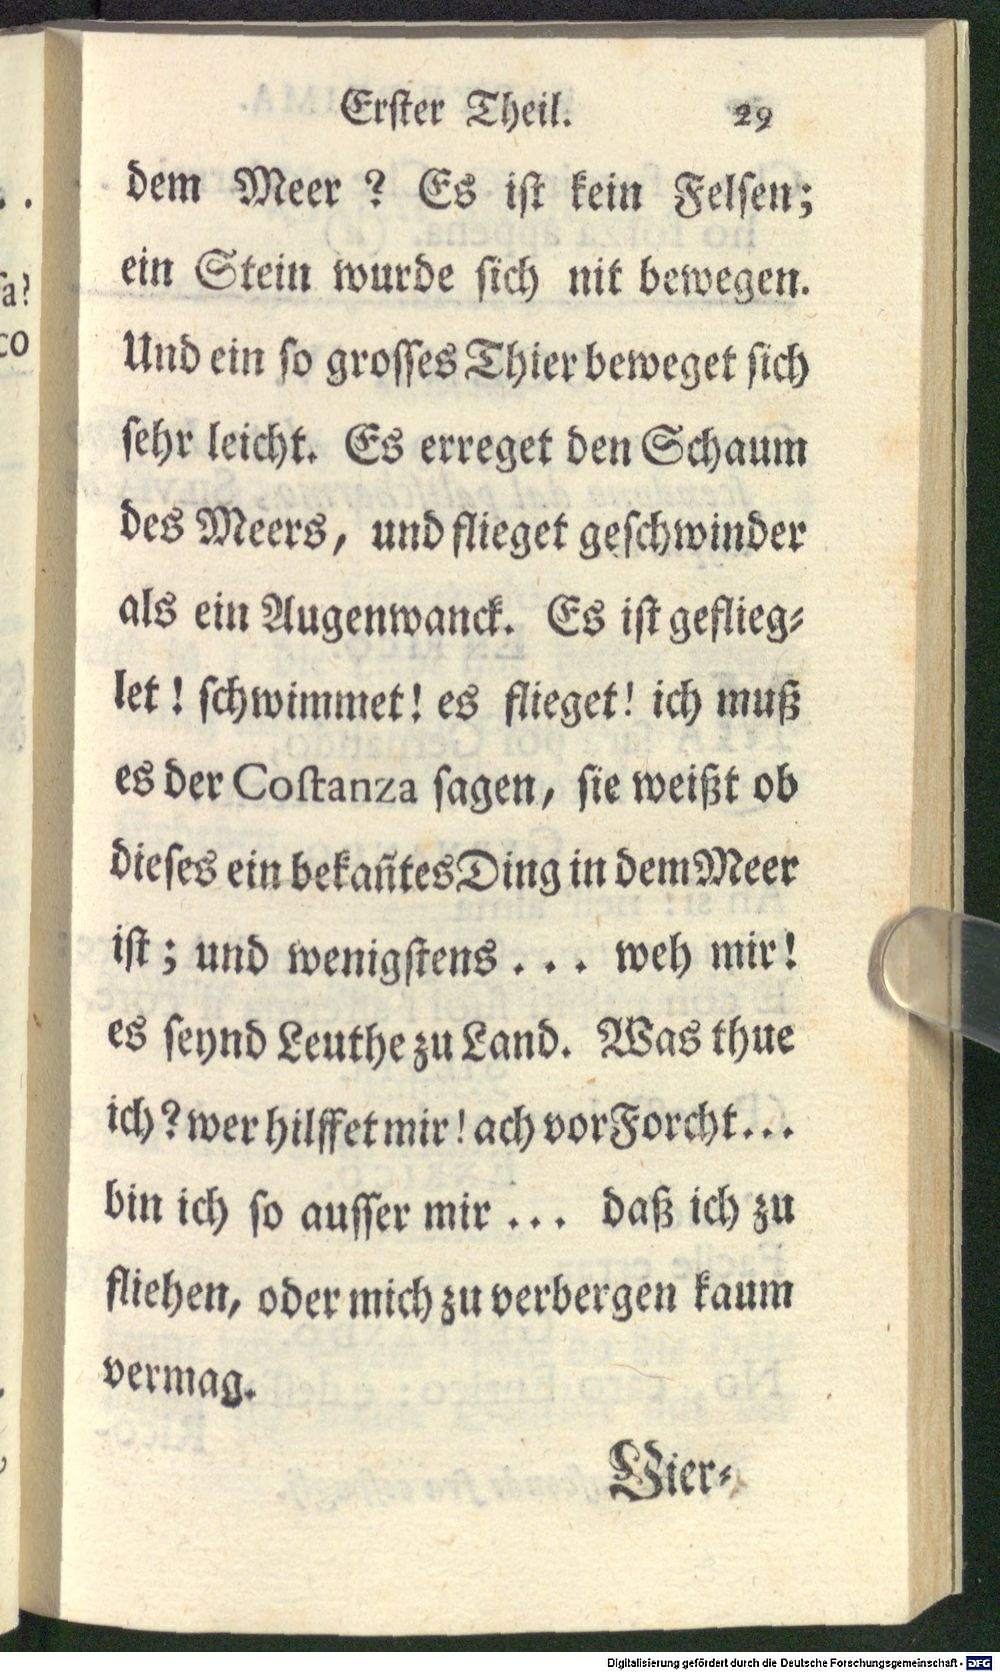 Erster Theil. 29
dem Meer ? Es ist kein Felsen;
ein Stein wurde sich nit bewegen.
Und ein so grosses Thier beweget sich
sehr leicht. Es erreget den Schaum
des Meers, und flieget geschwinder
als ein Augenwanck. Es ist geflieg-
let ! schwimmet! es flieget! ich muß
es der Costanza sagen, sie weißt ob
dieses ein bekañtes Ding in dem Meer
ist ; und wenigstens . . . weh mir!
es seynd Leuthe zu Land. Was thue
ich? wer hilffet mir! ach vor Forcht...
bin ich so ausser mir ... daß ich zu
fliehen, oder mich zu verbergen kaum
vermag.
Vier-
. .
sa?
co
Digitalisierung gefördert durch die Deutsche Forschungsgemeinschaft - DFG